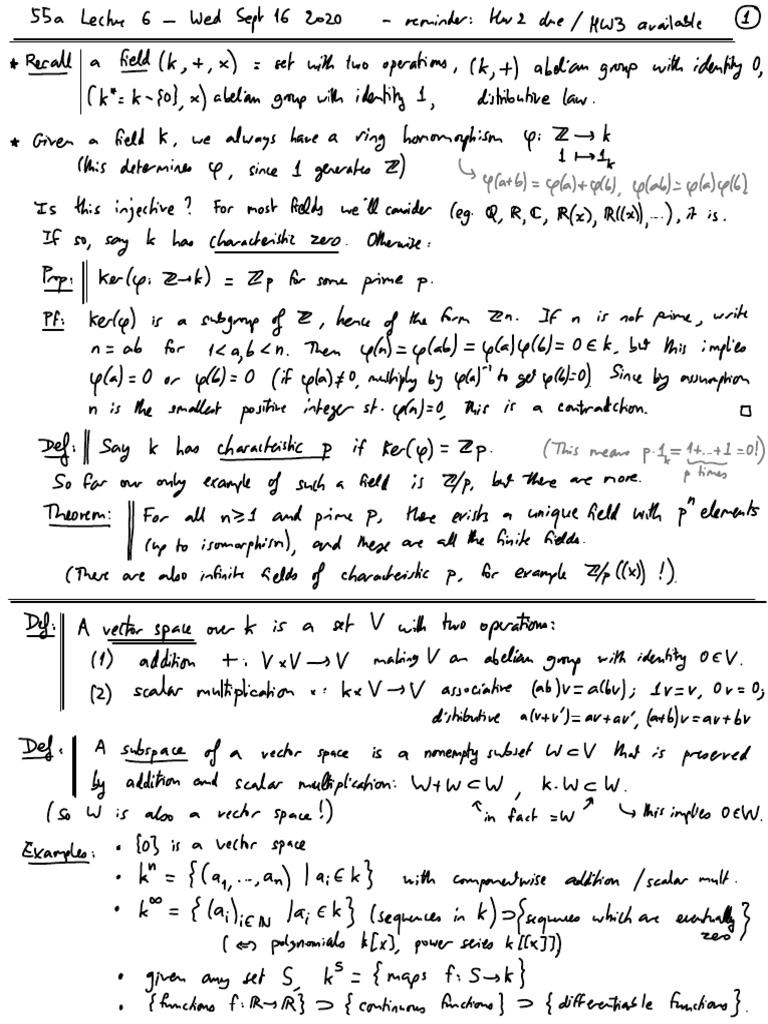 55a Lecture 6 – Wed Sept 16 2020 - reminder: Hw 2 due / HW3 available ①
* Recall | a field (k, +, ×) = set with two operations, (k,+) abelian group with identity 0,
(k* = k - {0}, ×) abelian group with identity 1, distributive law.
* Given a field k, we always have a ring homomorphism φ: ℤ → k
1 ↦ 1_k
(this determines φ, since 1 generates ℤ) ↳ φ(a+b) = φ(a)+φ(b), φ(ab) = φ(a)φ(b)
Is this injective? For most fields we'll consider (eg. ℚ, ℝ, ℂ, ℝ(x), ℝ((x)), ...), it is.
If so, say k has characteristic zero. Otherwise:
Prop: || Ker(φ: ℤ→k) = ℤp for some prime p.
Pf: Ker(φ) is a subgroup of ℤ, hence of the form ℤn. If n is not prime, write
n = ab for 1<a,b<n. Then φ(n) = φ(ab) = φ(a)φ(b) = 0 ∈ k, but this implies
φ(a) = 0 or φ(b) = 0 (if φ(a)≠0, multiply by φ(a)⁻¹ to get φ(b)=0). Since by assumption
n is the smallest positive integer st. φ(n)=0, this is a contradiction. □
Def: || Say k has characteristic p if Ker(φ) = ℤp. (This means p·1_k = 1+...+1 = 0!)
p times
So far our only example of such a field is ℤ/p, but there are more.
Theorem: || For all n≥1 and prime p, there exists a unique field with pⁿ elements
(up to isomorphism), and these are all the finite fields.
(There are also infinite fields of characteristic p, for example ℤ/p((x)) !).
Def: || A vector space over k is a set V with two operations:
(1) addition +: V×V → V making V an abelian group with identity 0∈V.
(2) scalar multiplication ×: k×V → V associative (ab)v = a(bv); 1v=v, 0v=0;
distributive a(v+v') = av+av', (a+b)v = av+bv
Def: || A subspace of a vector space is a nonempty subset W⊂V that is preserved
by addition and scalar multiplication: W+W⊂W, k·W⊂W.
(so W is also a vector space!) ↖ in fact =W ↗ ↳ this implies 0∈W.
Examples: • {0} is a vector space
• kⁿ = {(a₁, ..., aₙ) | aᵢ ∈ k} with componentwise addition / scalar mult.
• k^∞ = {(aᵢ)_{i∈ℕ} | aᵢ ∈ k} (sequences in k) ⊃ {sequences which are eventually zero}
(⇔ polynomials k[x], power series k[[x]])
• given any set S, k^S = {maps f: S→k}
• {functions f: ℝ→ℝ} ⊃ {continuous functions} ⊃ {differentiable functions}.